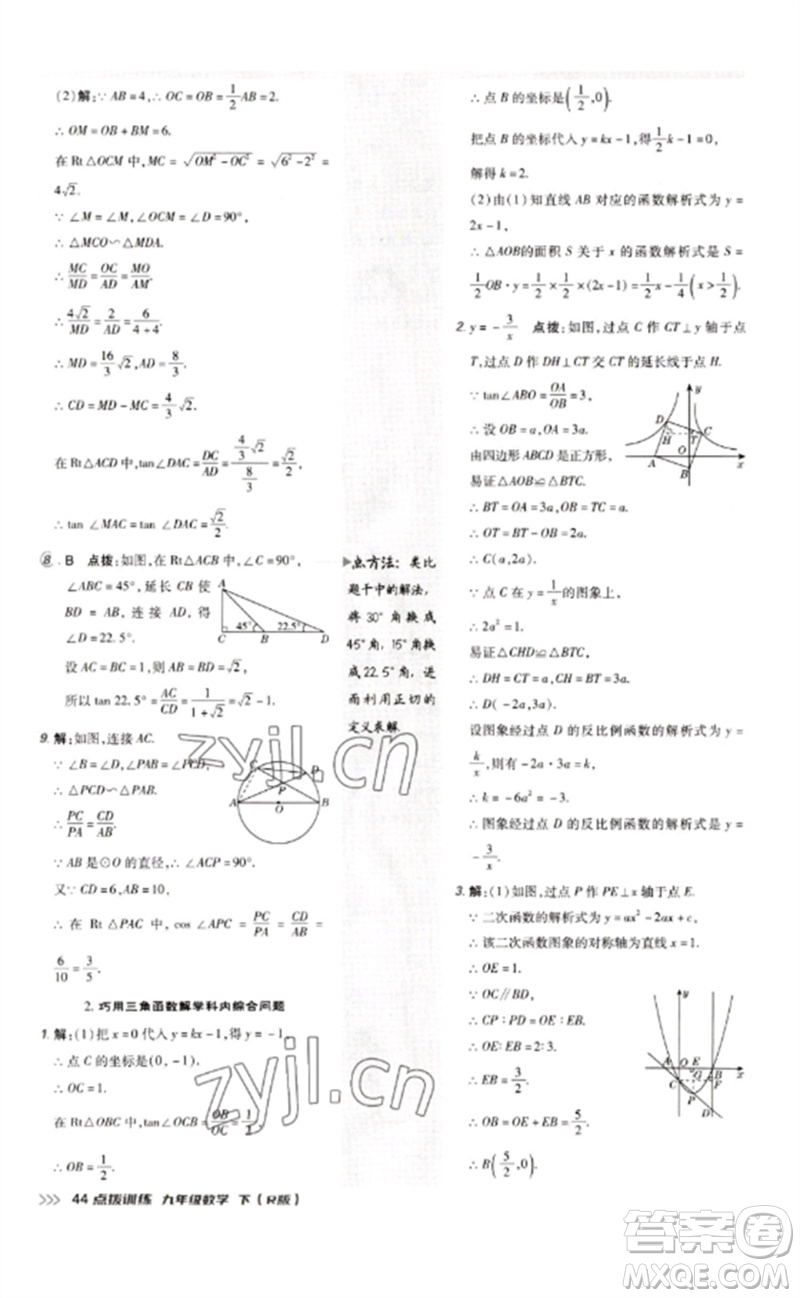 (2)解:∵ AB=4,∴ OC=OB=1/2AB=2.
∴ OM=OB+BM=6.
在 Rt△OCM 中,MC=√(OM²-OC²)=√(6²-2²)=
4√2.
∵ ∠M=∠M,∠OCM=∠D=90°,
∴ △MCO∽△MDA.
∴ MC/MD=OC/AD=MO/AM.
∴ 4√2/MD=2/AD=6/(4+4).
∴ MD=16/3√2,AD=8/3.
∴ CD=MD-MC=4/3√2.
在 Rt△ACD 中,tan∠DAC=DC/AD=(4/3√2)/(8/3)=√2/2.
∴ tan∠MAC=tan∠DAC=√2/2.
8. B 点拨:如图,在 Rt△ACB 中,∠C=90°,
∠ABC=45°,延长 CB 使
BD=AB,连接 AD,得
∠D=22.5°.
设 AC=BC=1,则 AB=BD=√2,
所以 tan 22.5°=AC/CD=1/(1+√2)=√2-1.
A
45°
22.5°
C B D
点方法:类比
题干中的解法,
将30°角换成
45°角,15°角换
成22.5°角,进
而利用正切的
定义求解.
9. 解:如图,连接 AC.
∵ ∠B=∠D,∠A=∠PCD,
∴ △PCD∽△PAB.
∴ PC/PA=CD/AB.
∵ AB 是⊙O 的直径,∴ ∠ACP=90°.
又∵ CD=6,AB=10,
∴ 在 Rt△PAC 中,cos∠APC=PC/PA=CD/AB=
6/10=3/5.
C D
P
A O B
2. 巧用三角函数解学科内综合问题
1. 解:(1)把 x=0 代入 y=kx-1,得 y=-1,
∴ 点 C 的坐标是(0,-1).
∴ OC=1.
在 Rt△OBC 中,tan∠OCB=OB/OC=1/2,
∴ OB=1/2.
∴ 点 B 的坐标是(1/2,0).
把点 B 的坐标代入 y=kx-1,得1/2k-1=0,
解得 k=2.
(2)由(1)知直线 AB 对应的函数解析式为 y=
2x-1,
∴ △AOB的面积 S 关于 x 的函数解析式是 S=
1/2OB·y=1/2×1/2×(2x-1)=1/2x-1/4(x>1/2).
2. y=-3/x 点拨:如图,过点 C 作 CT⊥y 轴于点
T,过点 D 作 DH⊥CT 交 CT 的延长线于点 H.
∵ tan∠ABO=OA/OB=3,
∴ 设 OB=a,OA=3a.
由四边形 ABCD 是正方形,
易证△AOB≌△BTC.
∴ BT=OA=3a,OB=TC=a.
∴ OT=BT-OB=2a.
∴ C(a,2a).
∵ 点 C 在 y=1/x的图象上,
∴ 2a²=1.
易证△CHD≌△BTC,
∴ DH=CT=a,CH=BT=3a.
∴ D(-2a,3a).
设图象经过点 D 的反比例函数的解析式为 y=
k/x,则有-2a·3a=k.
∴ k=-6a²=-3.
∴ 图象经过点 D 的反比例函数的解析式为 y=
-3/x.
y
D
H T C
A O x
B
3. 解:(1)如图,过点 P 作 PE⊥x 轴于点 E.
∵ 二次函数的解析式为 y=ax²-2ax+c,
∴ 该二次函数图象的对称轴为直线 x=1.
∴ OE=1.
∵ OC∥BD,
∴ CP:PD=OE:EB.
∴ OE:EB=2:3.
∴ EB=3/2.
∴ OB=OE+EB=5/2.
∴ B(5/2,0).
y
A O E B x
C F
P
D
44 点拨训练 九年级数学 下(R版)
zyjl.cn
zyjl.cn
答案卷
MXQE.COM